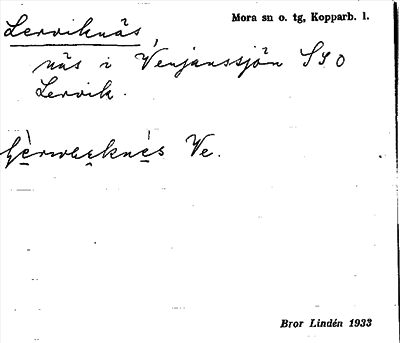 Lerviknäs, Mora sn o. tg, Kopparb. l.
näs i Venjanssjön SSO
Lervik.
Ve.
Bror Lindén 1933